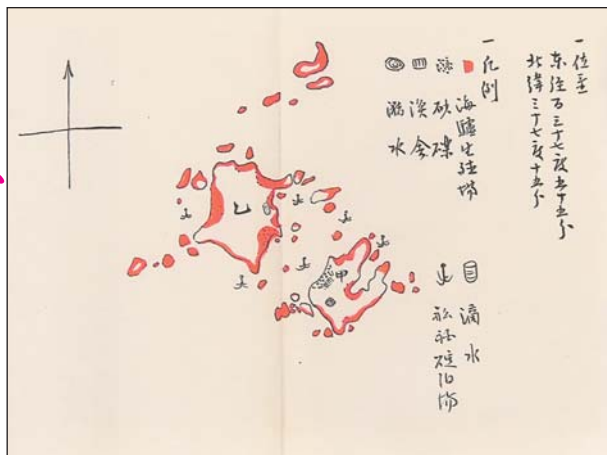 一位置
東経百三十七度五十五分
北緯三十七度十五分
一凡例
海驢生殖場
砂礫
漁舎
溜水
滴水
船舶碇泊場
乙
甲